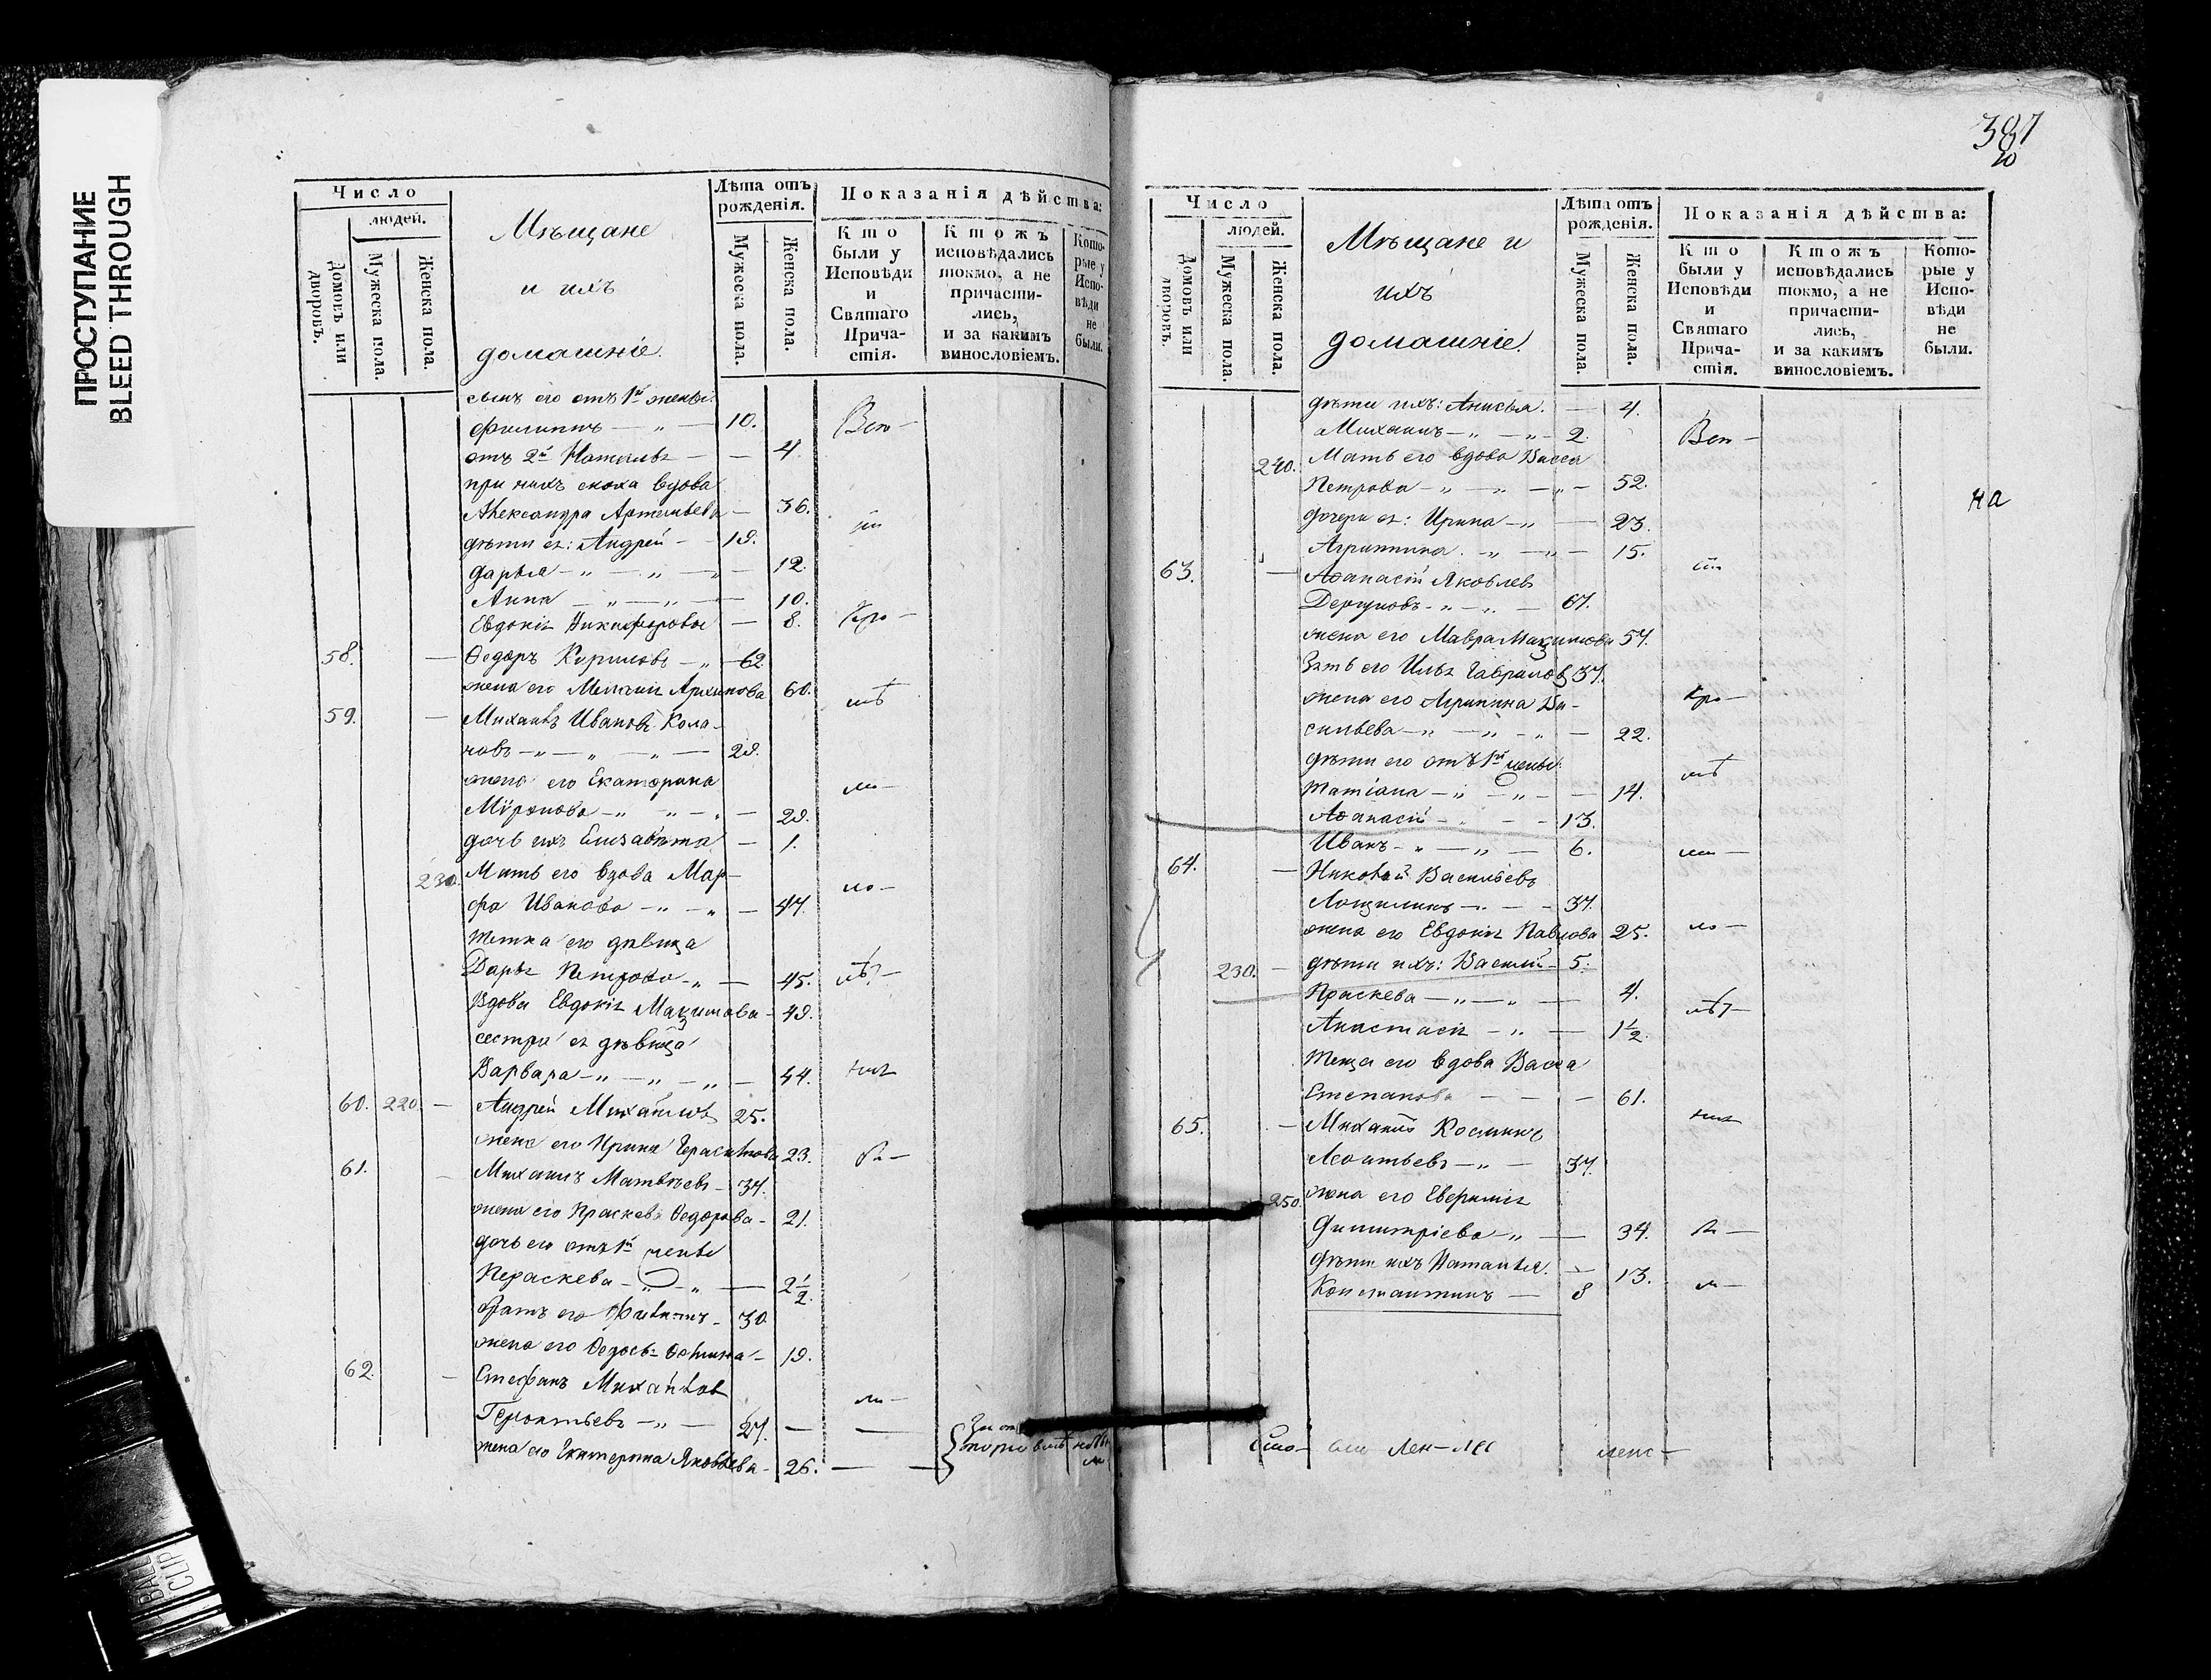 ПРОСТУПАНИЕ
BLEED THROUGH
Число
людей.
Домовъ или дворовъ.
Мужеска пола.
Женска пола.
Мѣщане
и ихъ
домашніе.
Лѣта отъ рожденія.
Мужеска пола.
Женска пола.
Показанія дѣйства:
Кто были у Исповѣди и Святаго Прича-стія.
Ктожъ исповѣдались токмо, а не причасти-лись, и за какимъ винословіемъ.
Кото-рые у Испо-вѣди не были.
сынъ его отъ 1й жены:
Филиппъ — " — 10.
отъ 2й Наталья — — 4.
при нихъ сноха вдова
Александра Артемьева — 36.
дѣти ея: Андрей — 19.
Дарья — " — " — 12.
Анна — " — " — 10.
Евдокія Никифоровы — 8.
58. — Ѳедоръ Кириловъ — " — 62
жена его Меланія Архипова 60.
59. — Михаилъ Ивановъ Кола-
човъ — " — " — " — 29.
жена его Екатерина
Мѵронова — " — " — 29.
дочь ихъ Елизавета — 1.
230. Мать его вдова Мар-
фа Иванова — " — " — 47.
тетка его дѣвица
Дарья Петрова — " — 45.
Вдова Евдокія Маѯимова — 49.
сестра ея дѣвица
Варвара — " — " — " — 44.
60. 220. — Андрей Михайловъ 25.
жена его Ирина Герасимова 23.
61. — Михаилъ Матвѣевъ — 37.
жена его Праскева Ѳедорова — 21.
дочь его отъ 1й жены
Пераскева — " — " — 2½.
братъ его Филиппъ — 30.
жена его Ѳедосья Ѳомина — 19.
62. — Стефанъ Михайловъ
Герсонтьевъ — " — 27. — —
жена его Екатерина Яковлева — 26. — —
387
10
Число
людей.
Домовъ или дворовъ.
Мужеска пола.
Женска пола.
Мѣщане и
ихъ
домашніе.
Лѣта отъ рожденія.
Мужеска пола.
Женска пола.
Показанія дѣйства:
Кто были у Исповѣди и Святаго Прича-стія.
Ктожъ исповѣдались токмо, а не причасти-лись, и за какимъ винословіемъ.
Кото-рые у Испо-вѣди не были.
дѣти ихъ: Анисья. — 4.
Михаилъ — " — " — 2.
240. Мать его вдова Васса
Петрова — " — " — " — 52.
дочери ея: Ирина — " — 23.
Агриппина. — " — " — 15.
63. — Аѳанасій Яковлевъ
Дергуновъ — " — " — 67.
жена его Мавра Маѯимова 57.
Зять его Илья Гавриловъ 37.
жена его Агрипина Ва-
сильева — " — " — " — 22.
дѣти его отъ 1й жены:
Татіана — " — " — 14.
Аѳанасій — " — — 13.
Иванъ — " — " — 6.
64. — Николай Васильевъ
Лощилинъ — " — — 37.
жена его Евдокія Павлова 25.
230. — дѣти ихъ: Василій — 5.
Праскева — " — " — 4.
Анастасія — " — 1½.
Теща его вдова Васса
Степанова — — — 61.
65. — Михаилъ Косминъ
Леонтьевъ — " — 37.
250. жена его Евфимія
Димитріева — " — 34.
дѣти ихъ Наталья. — 13.
Константинъ — 8
на